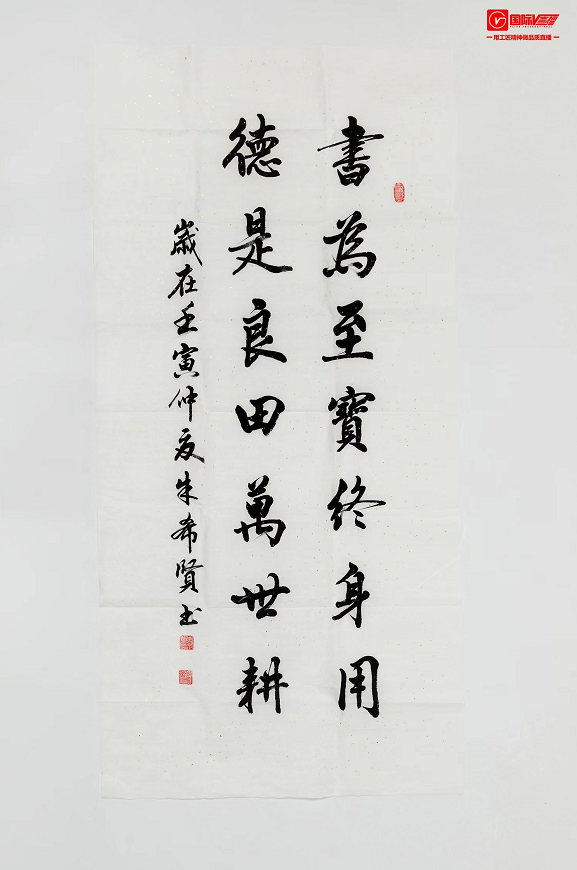 國际V
用工匠精神做品质直播
書為至寶終身用
德是良田萬世耕
歲在壬寅仲夏朱希賢书